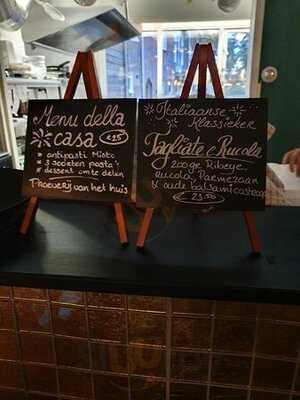 Menu della
casa €25
* antipasti Misto
* 3 soorten pasta
* dessert om te delen
Proeverij van het huis
Italiaanse
Klassieker
Tagliate e Rucola
200gr Ribeye.
rucola, Parmezaan
& oude balsamicoazijn
€ 23.50